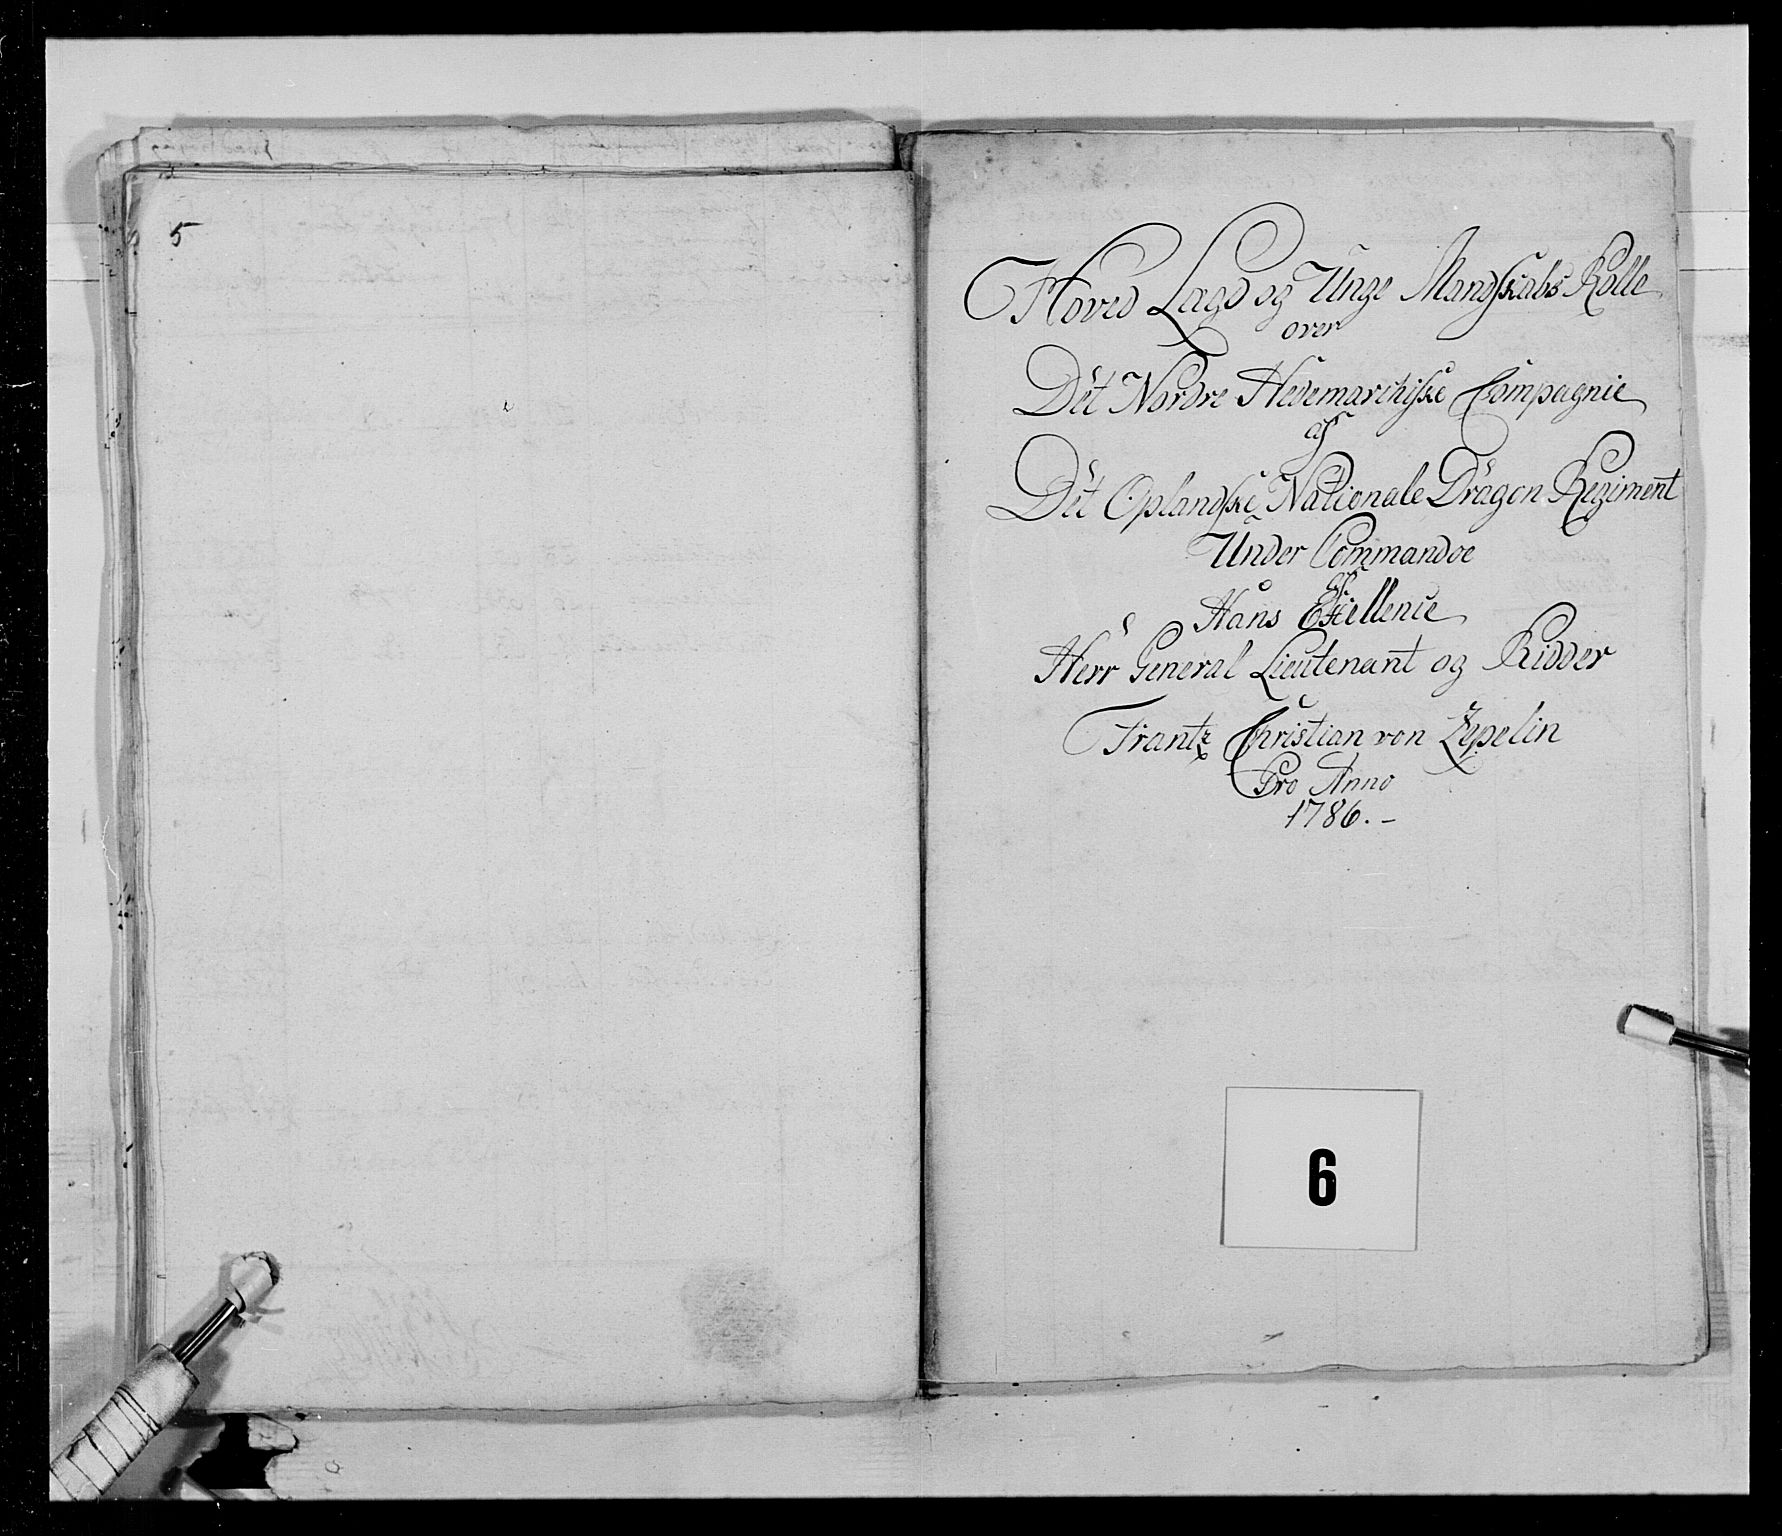 5
Hoved Lægd og Unge Mandskabs Rolle
over
Det Nordre Hedemarchiske Compagnie
af
Det Oplandske Nationale Dragon Regiment
Under Commandoe
af
Hans Excellence
Herr General Lieutenant og Ridder
Frantz Christian von Zepelin
Pro Anno
1786.-
6